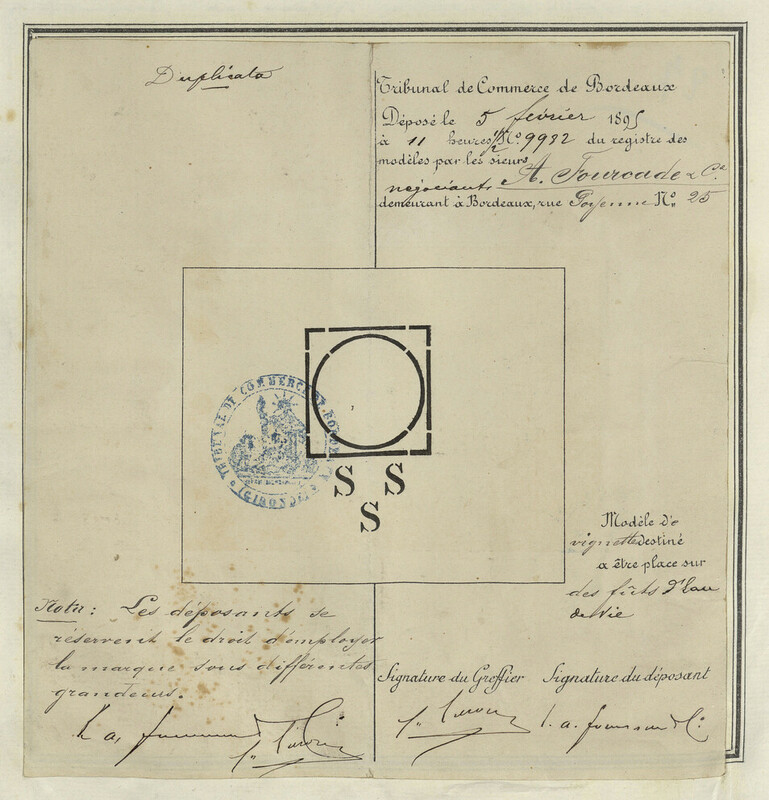 Duplicata
Tribunal de Commerce de Bordeaux
Déposé le 5 février 1895
à 11 heures 1/2 No. 9982 du registre des
modèles par les sieurs A. Fourcade & Cie
négociants
demeurant à Bordeaux, rue No. 25
TRIBUNAL DE COMMERCE DE BORDEAUX
(GIRONDE)
S S
S
Modèle de
vignette destiné
a être place sur
des fûts d'Eau
de Vie
Nota : Les déposants se
réservent le droit d'employer
la marque sous différentes
grandeurs.
Signature du Greffier Signature du déposant